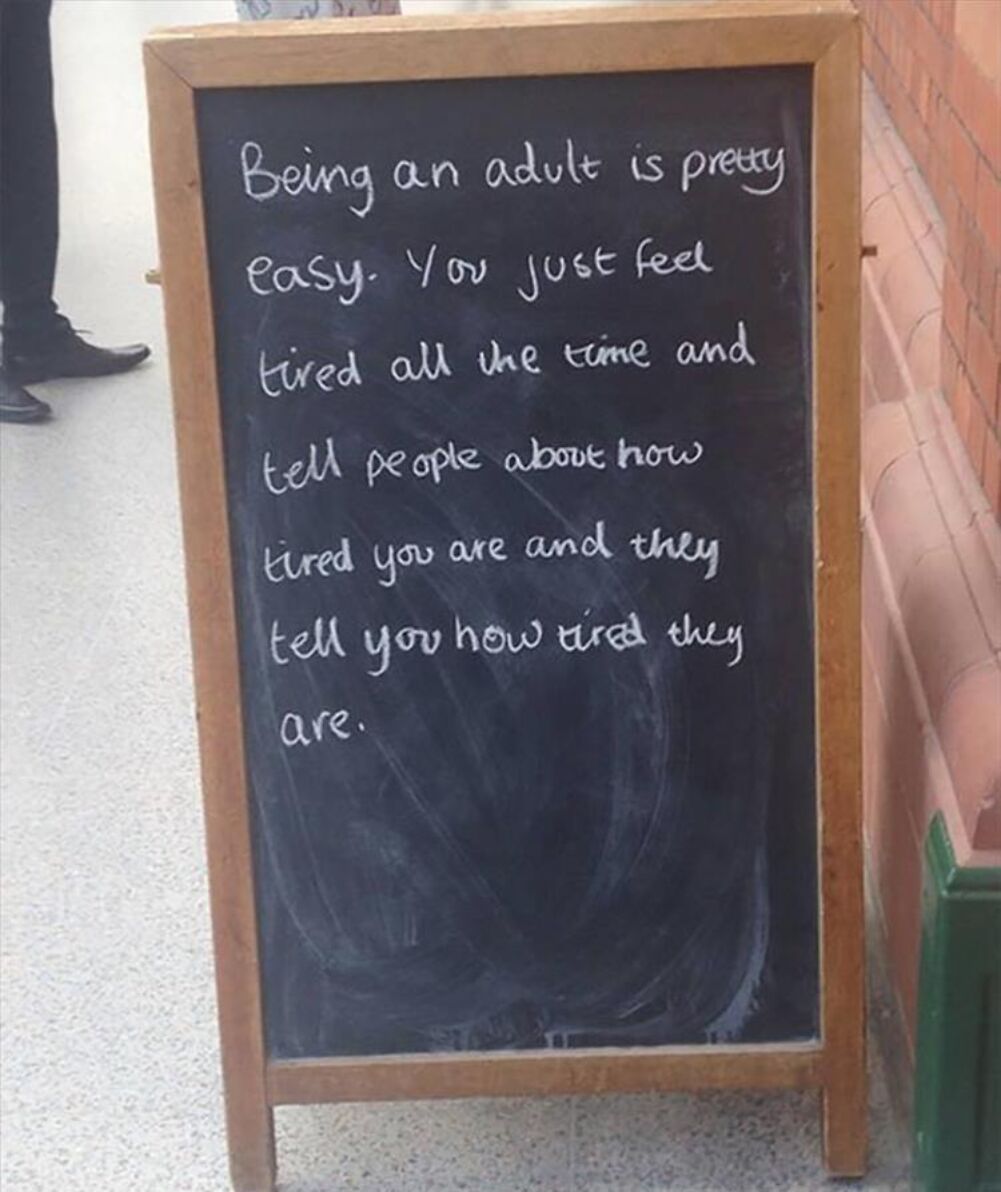 Being an adult is pretty
easy. You just feel
tired all the time and
tell people about how
tired you are and they
tell you how tired they
are.